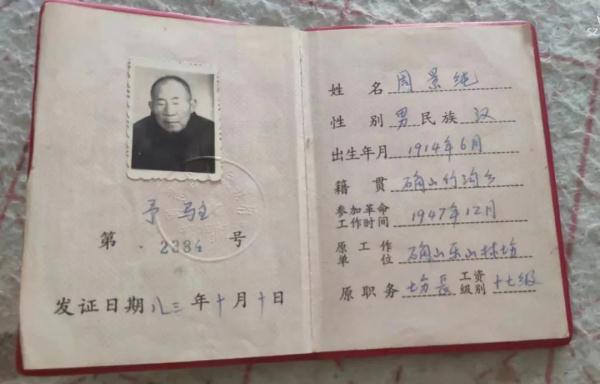 予驻
第 2284 号
发证日期 八三 年 十 月 十 日
姓名 周景纯
性别 男 民族 汉
出生年月 1914年6月
籍贯 确山竹沟乡
参加革命工作时间 1947年12月
原工作单位 确山乐山林场
原职务 场长 工资级别 十七级